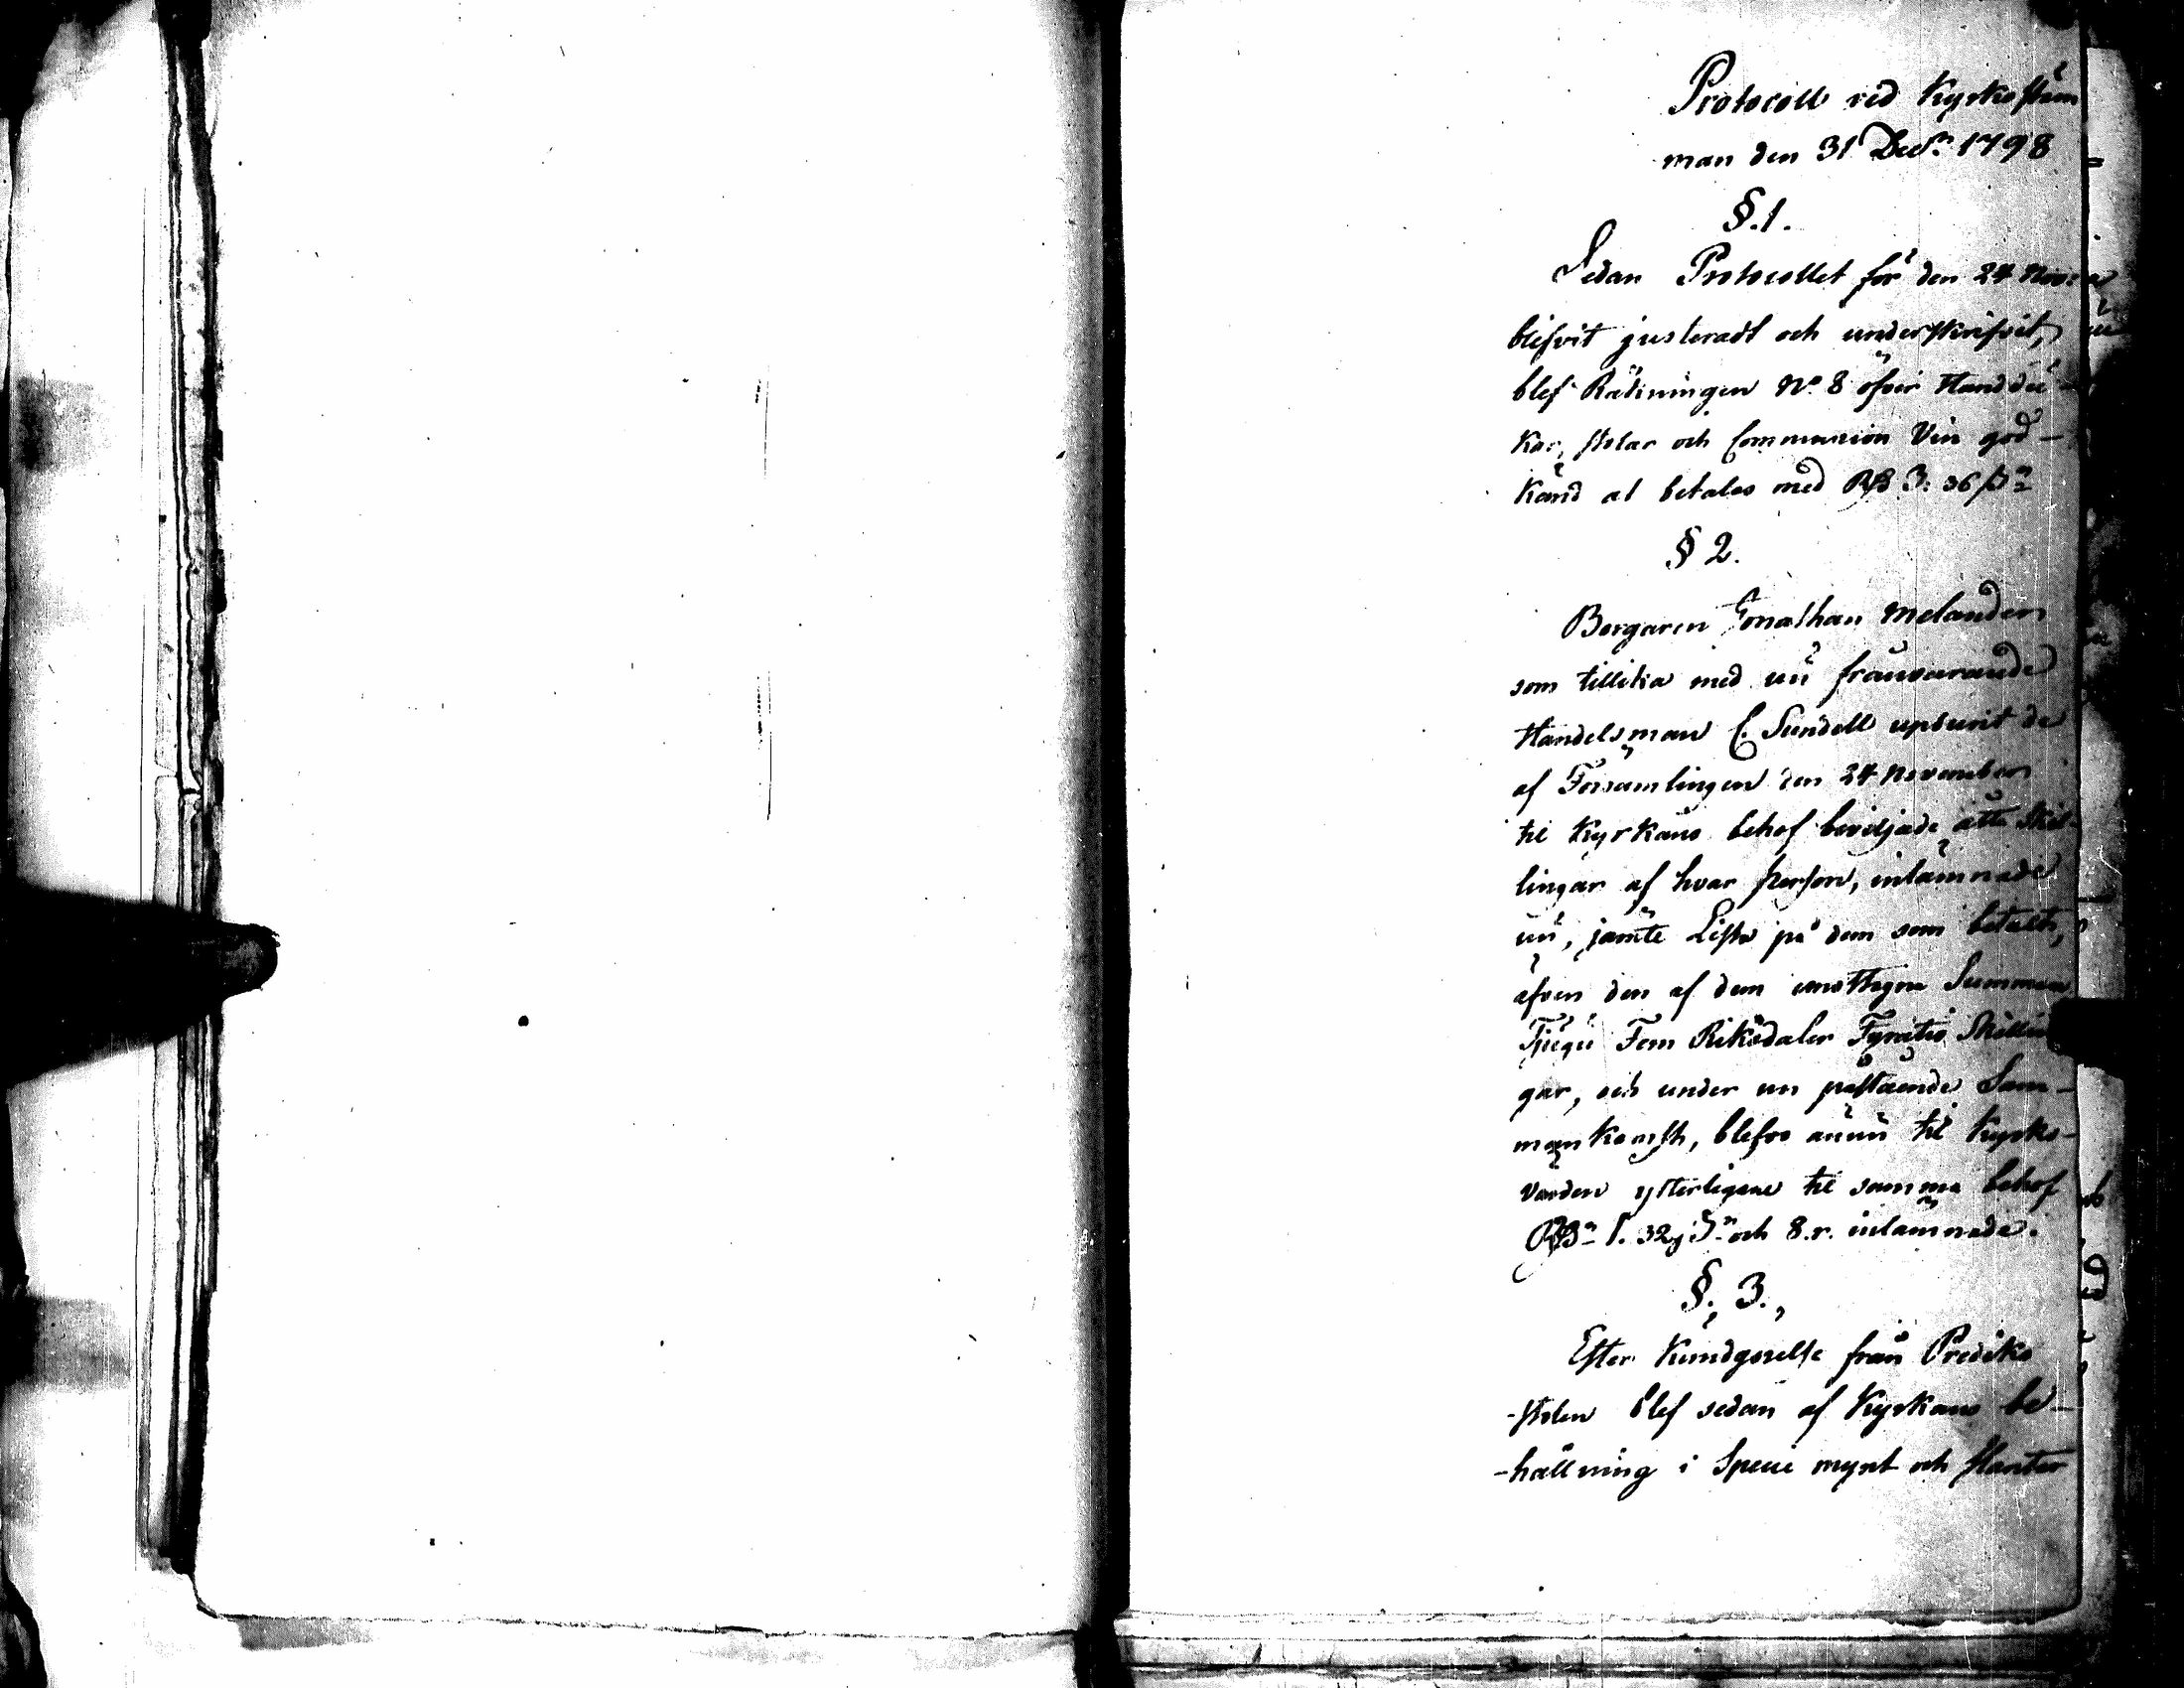 Protocoll vid Kyrkostäm
man den 31 Decr. 1798
§.1.
Sedan Protocollet för den 24 Nov:
blifvit justeradt och underskrifvit,
blef Räkningen No. 8 öfver Handdu
kar, stolar och Communion Vin god-
känd at betalas med Rd 3: 36 sn
§ 2.
Borgaren Jonathan Melander
som tillika med nu frånvarande
Handelsman C. Sundell upburit de
af Församlingen den 24 November
til Kyrkans behof beviljade åtta Skil
lingar af hvar person, inlämnade
nu, jämte Lista på dem som betalt,
äfven den af dem emottagne Summan
Tjugu Fem Riksdaler Fyratio Skillin
gar, och under nu påstående Sam-
mankomst, blefvo ännu til Kyrko-
värden ytterligare til samma behof
Rd 1. 32 s och 8.r. inlämnade.
§. 3.,
Efter Kundgörelse från Prediko
-stolen blef sedan af Kyrkans be-
-hållning i Specie mynt och slantar